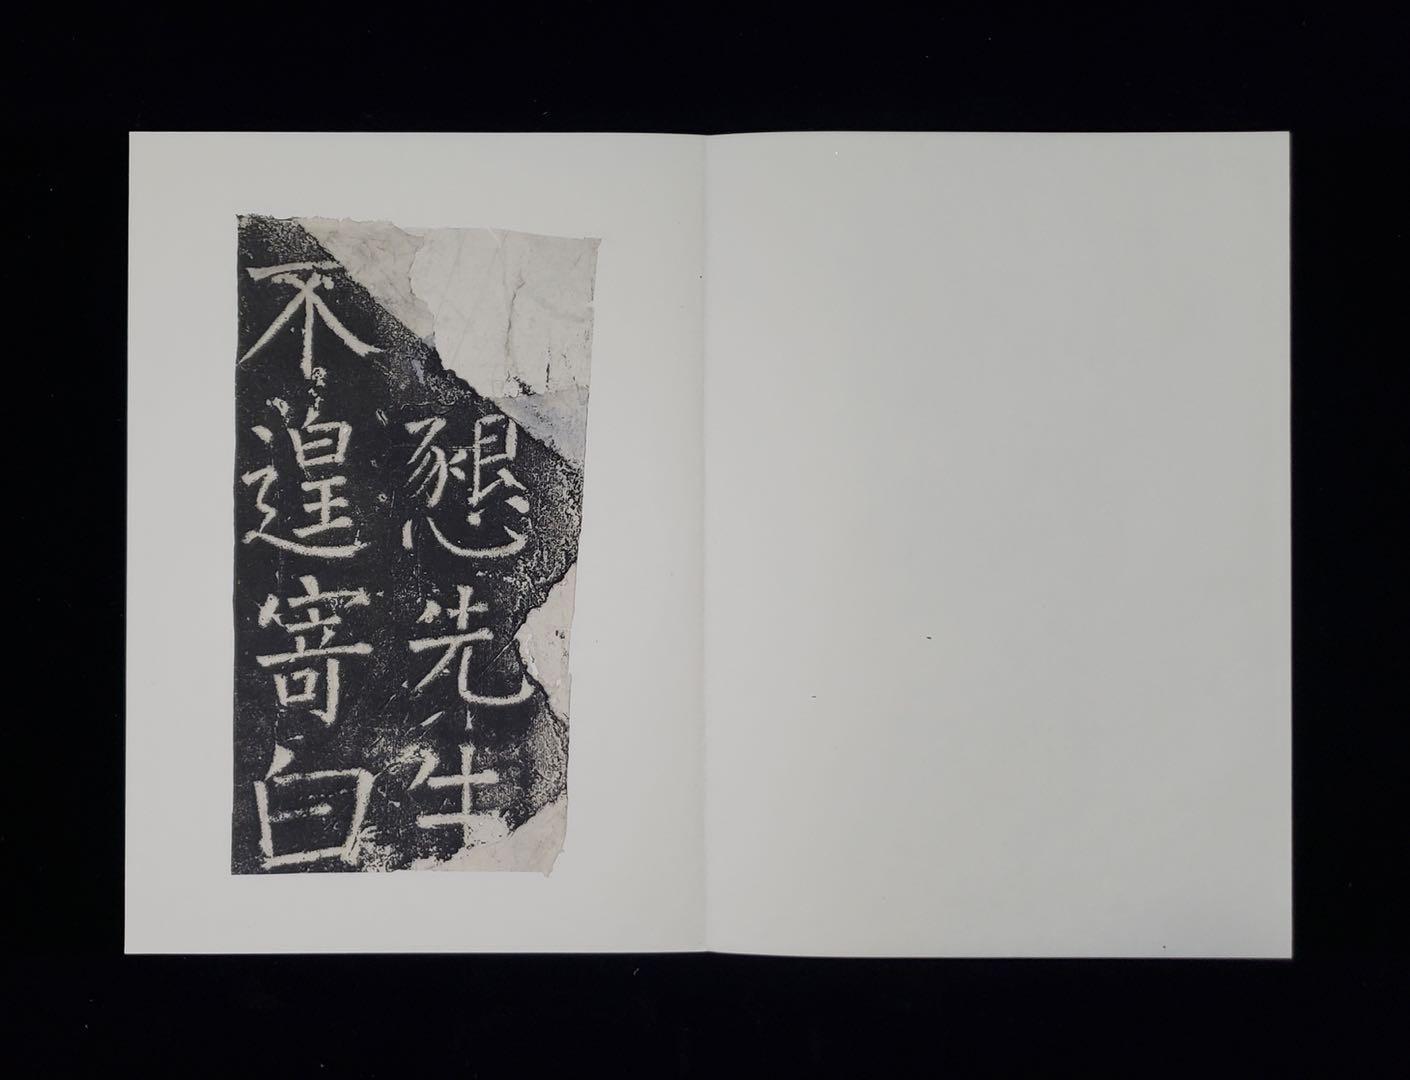 懇先生
不遑寄白